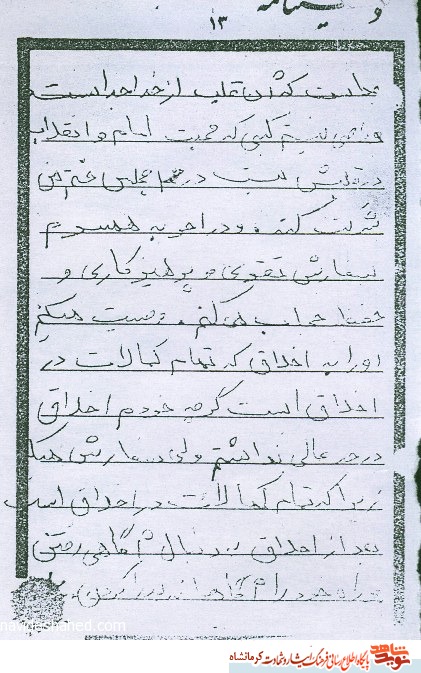 وصیتنامه
۱۳
است که آن قلب از خدا جداست
کسی که محبت امام و انقلاب
در قلبش نیست در مجلس ختم من
شرکت کند. و در آخر به همسرم
سفارش تقوی و پرهیزکاری و
حفظ حجاب می کنم. وصیت میکنم
او را به اخلاق که تمام کمالات در
اخلاق است گرچه خودم اخلاق
در حد عالی نداشتم ولی سفارش میکنم
زیرا که تمام کمالات در اخلاق است
بعد از اخلاق به دنبال
navideshahed.com
نوید شاهد
پایگاه اطلاع رسانی فرهنگ ایثار و شهادت کرمانشاه